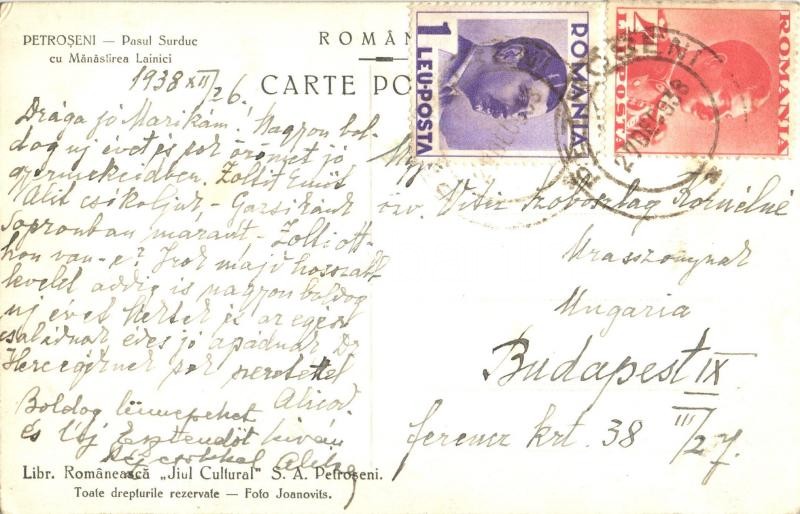 PETROȘENI — Pasul Surduc
cu Mănăstirea Lainici
ROMÂN
CARTE PO
1 LEU·POSTA
ROMANIA
4 LEI POSTA
ROMANIA
1938 XII/26.
Drága jó Marikám! Nagyon bol-
dog uj évet és sok örömet jó
gyermekeidben. Zoltit Emőt
Alit csókoljuk – Garsikánk
Sopronban maradt – Zolti ott-
hon van-e? Irok majd hosszabb
levelet addig is nagyon boldog
uj évet Nektek és az egész
családnak édes jó apádnak Dr
Hercegéknek sok szeretettel
Alicod.
Boldog ünnepeket
és Uj Esztendőt kíván
özv. Vitéz Szoboszlay Kornélné
Urasszonynak
Ungaria
Budapest IX
Ferencz krt. 38 III/27.
Libr. Românească „Jiul Cultural" S. A. Petroșeni.
Toate drepturile rezervate — Foto Joanovits.